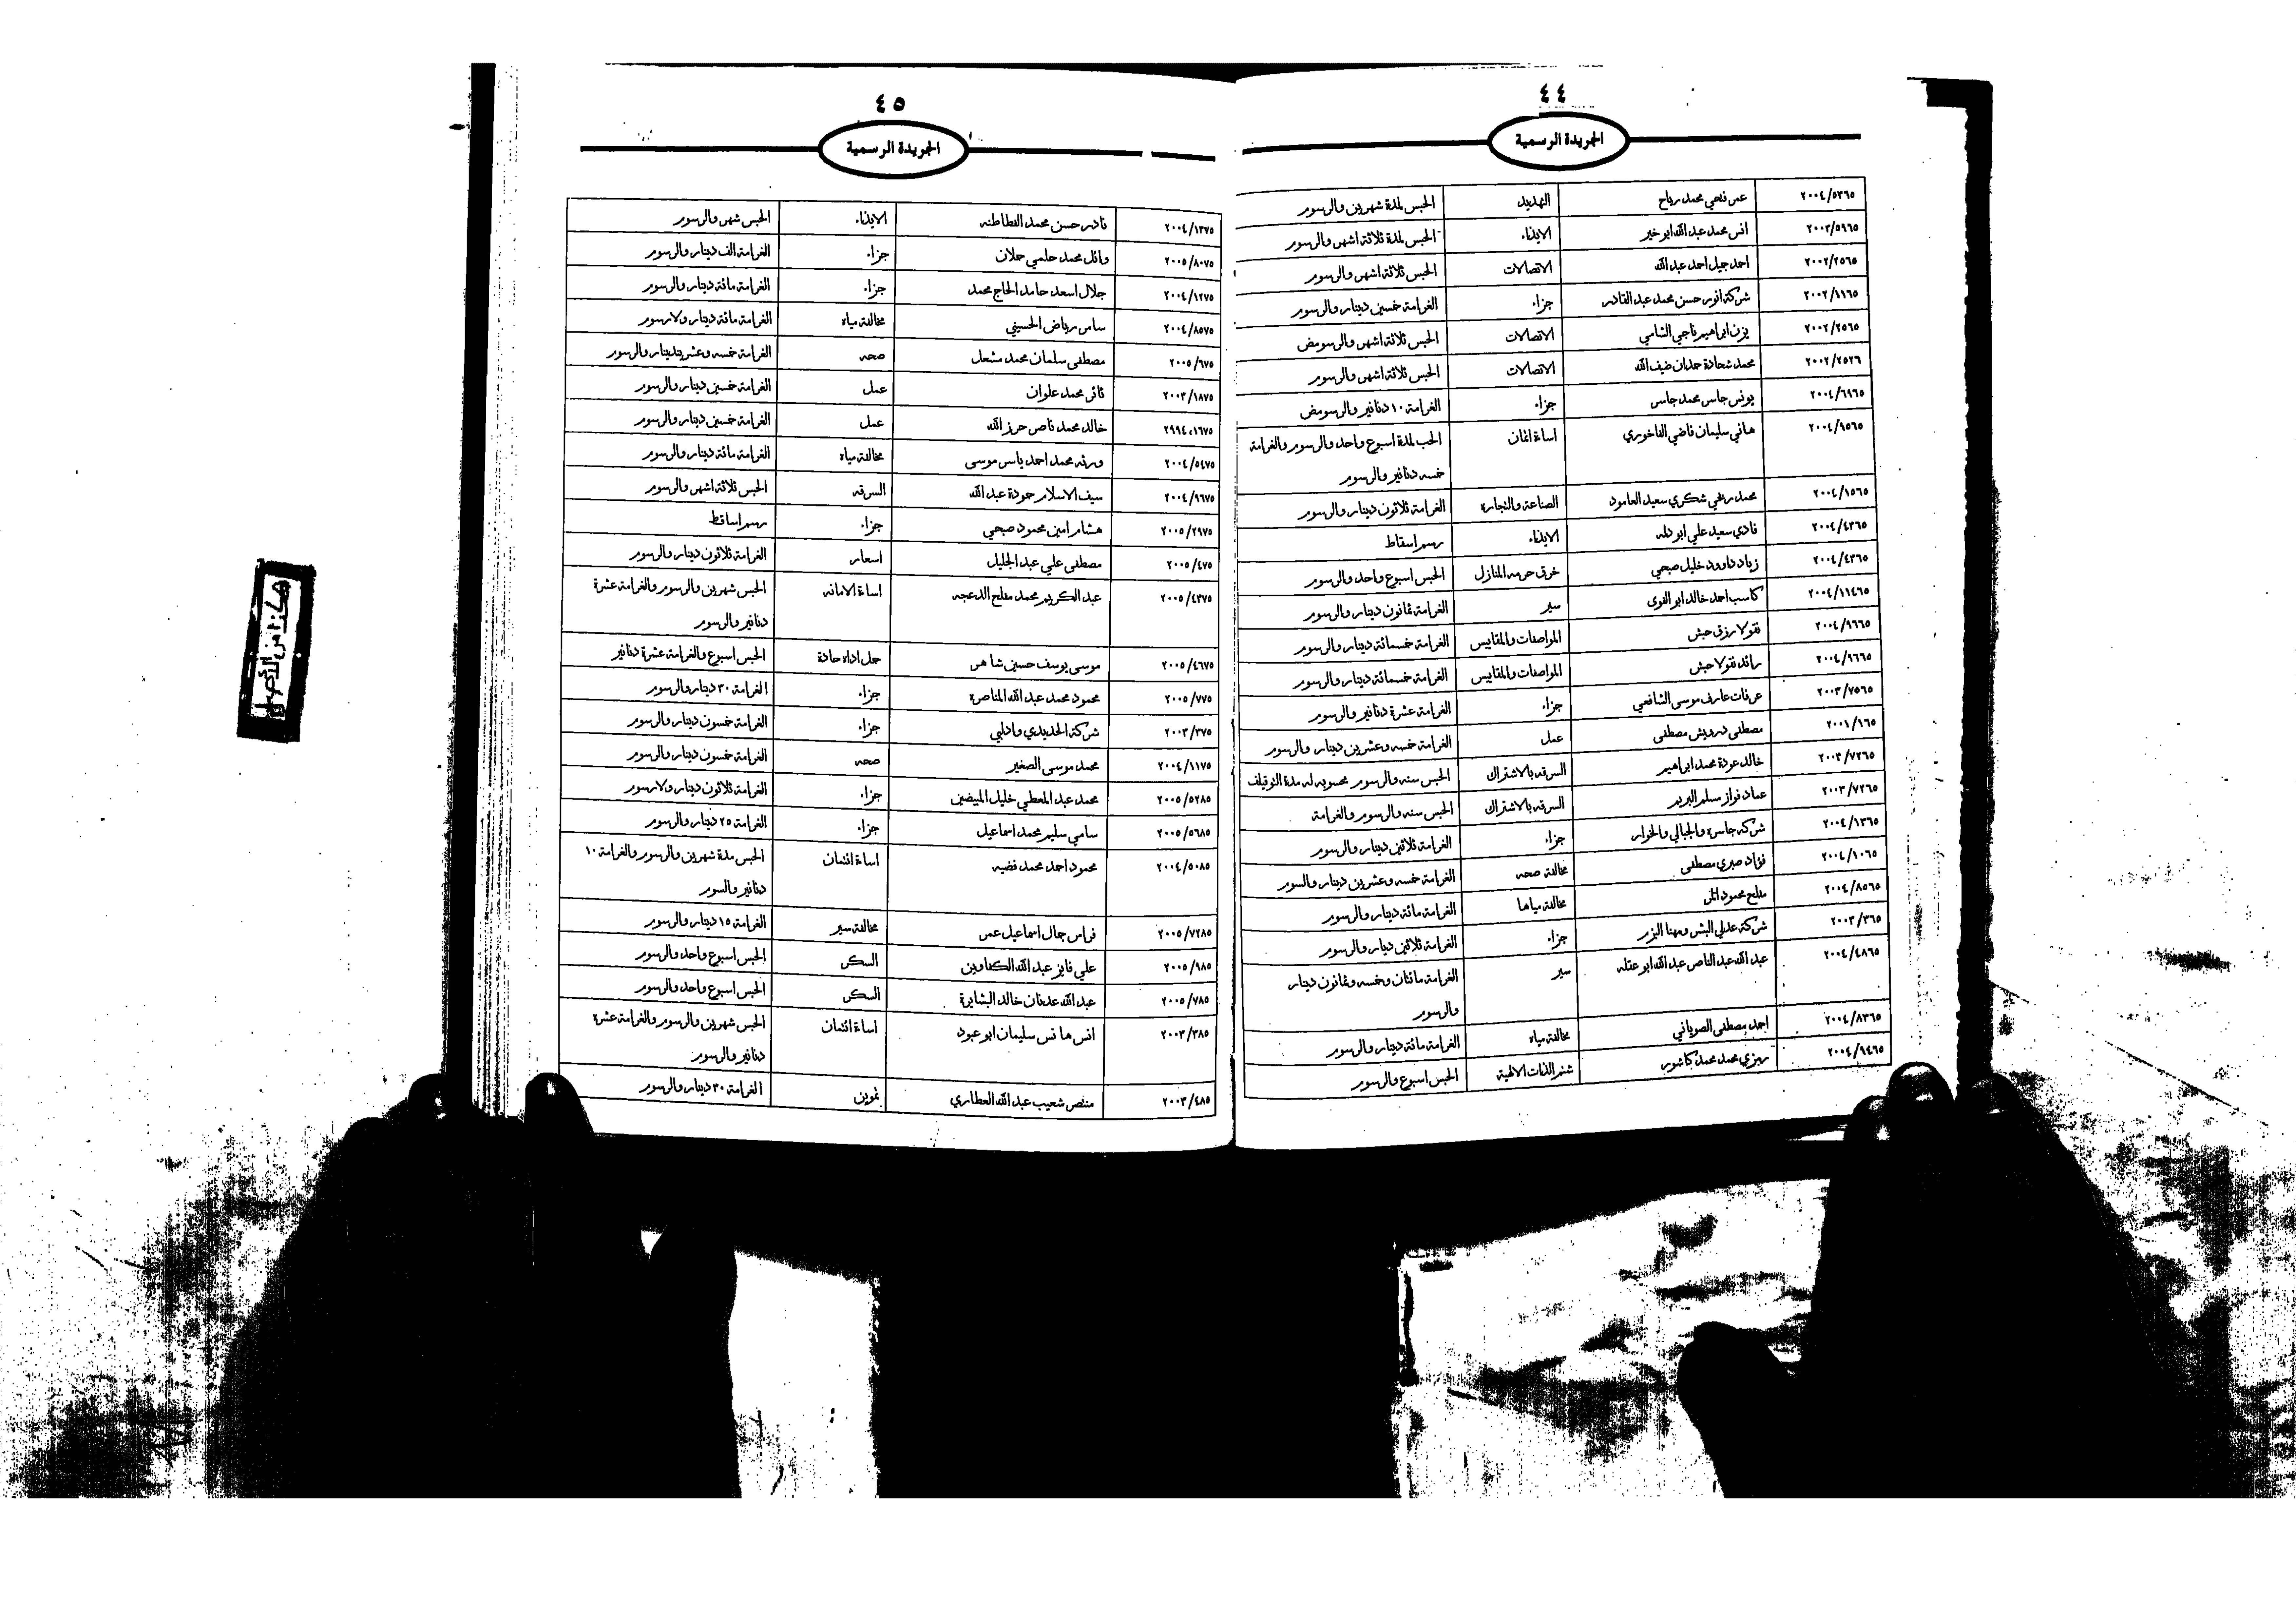 ٤٤
الجريدة الرسمية
٢٠٠٤/٥٣٦٥ عمر فتحي محمد رباح التهديد الحبس لمدة شهرين والرسوم
٢٠٠٣/٥٩٦٥ انس محمد عبد الله ابو خير الايذاء الحبس لمدة ثلاثة اشهر والرسوم
٢٠٠٢/٢٥٦٥ احمد جميل احمد عبد الله الاتصالات الحبس ثلاثة اشهر والرسوم
٢٠٠٢/١١٦٥ شركة انور حسن محمد عبد القادر جزاء الغرامة خمسين دينار والرسوم
٢٠٠٢/٢٥٦٥ يزن ابراهيم ناجي الشامي الاتصالات الحبس ثلاثة اشهر والرسومض
٢٠٠٢/٢٥٢٦ محمد شحادة حمدان ضيف الله الاتصالات الحبس ثلاثة اشهر والرسوم
٢٠٠٤/٦٩٦٥ يونس جاسر محمد جاسر جزاء الغرامة ١٠ دنانير والرسومض
٢٠٠٤/٩٥٦٥ هاني سليمان فاضي الفاخوري اساءة ائمان الحب لمدة اسبوع واحد والرسوم والغرامة
خمسه دنانير والرسوم
٢٠٠٤/١٥٦٥ محمد ربحي شكري سعيد العامود الصناعة والتجارة الغرامة ثلاثون دينار والرسوم
٢٠٠٤/٤٣٦٥ فادي سعيد علي ابو دله الايذاء رسم اسقاط
٢٠٠٤/٤٣٦٥ زياد داوود خليل صبحي خرق حرمه المنازل الحبس اسبوع واحد والرسوم
٢٠٠٤/١١٤٦٥ كاسب احمد خالد ابو الفوى سير الغرامة ثمانون دينار والرسوم
٢٠٠٤/٩٦٦٥ نقولا رزق حبش المواصفات والمقاييس الغرامة خمسمائة دينار والرسوم
٢٠٠٤/٩٦٦٥ رائد نقولا حبش المواصفات والمقاييس الغرامة خمسمائة دينار والرسوم
٢٠٠٣/٧٥٦٥ عرفات عارف موسى الشافعي جزاء الغرامة عشرة دنانير والرسوم
٢٠٠١/١٦٥ مصطفى درويش مصطفى عمل الغرامة خمسه وعشرين دينار والرسوم
٢٠٠٣/٧٢٦٥ خالد عودة محمد ابراهيم السرقه بالاشتراك الحبس سنه والرسوم محسوبه له مدة التوقيف
٢٠٠٣/٧٢٦٥ عماد فواز سلم البرير السرقه بالاشتراك الحبس سنه والرسوم والغرامة
٢٠٠٤/١٣٦٥ شركه جاسر والجبالي والخوار جزاء الغرامة ثلاثين دينار والرسوم
٢٠٠٤/١٠٦٥ فؤاد صبري مصطفى مخالفة صحه الغرامة خمسه وعشرين دينار والسوم
٢٠٠٤/٨٥٦٥ مفلح محمود مخالفة مياها الغرامة مائة دينار والرسوم
٢٠٠٣/٣٦٥ شركة عدلي البشر ومهنا البزر جزاء الغرامة ثلاثين دينار والرسوم
٢٠٠٤/٤٨٦٥ عبد الله عبد الناصر عبد الله ابو عقله سير الغرامة مائتان وخمسه وثمانون دينار
والرسوم
٢٠٠٤/٨٣٦٥ احمد مصطفى الصوباني مخالفة مياه الغرامة مائة دينار والرسوم
٢٠٠٤/٩٤٦٥ رمزي محمد محمد كاشور شتم الذات الالهية الحبس اسبوع والرسوم
٤٥
الجريدة الرسمية
٢٠٠٤/١٣٧٥ نادر حسن محمد القطاطنه الايذاء الحبس شهر والرسوم
٢٠٠٥/٨٠٧٥ وائل محمد حلمي حملان جزاء الغرامة الف دينار والرسوم
٢٠٠٤/١٢٧٥ جلال اسعد حامد الحاج محمد جزاء الغرامة مائة دينار والرسوم
٢٠٠٤/٨٥٧٥ سامر رياض الحسيني مخالفة مياه الغرامة مائة دينار ولارسوم
٢٠٠٥/٦٧٥ مصطفى سلمان محمد مشعل صحه الغرامة خمسه وعشريندينار والرسوم
٢٠٠٣/١٨٧٥ ثائر محمد علوان عمل الغرامة خمسين دينار والرسوم
٢٩٩٤٠١٦٧٥ خالد محمد ناصر حرز الله عمل الغرامة خمسين دينار والرسوم
٢٠٠٤/٥٤٧٥ ورثه محمد احمد ياسر موسى مخالفة مياه الغرامة مائة دينار والرسوم
٢٠٠٤/٩٦٧٥ سيف الاسلام حمودة عبد الله السرقه الحبس ثلاثة اشهر والرسوم
٢٠٠٥/٢٩٧٥ هشام امين محمود صبحي جزاء رسم اساقط
٢٠٠٥/٤٧٥ مصطفى علي عبد الجليل اسعار الغرامة ثلاثون دينار والرسوم
٢٠٠٥/٤٣٧٥ عبد الكريم محمد مفلح الدعجه اساءة الامانه الحبس شهرين والرسوم والغرامة عشرة
دنانير والرسوم
٢٠٠٥/٤٦٧٥ موسى يوسف حسين شاهر حمل اداه حادة الحبس اسبوع والغرامة عشرة دنانير
٢٠٠٥/٧٧٥ محمود محمد عبد الله المناصرة جزاء الغرامة ٣٠ دينار والرسوم
٢٠٠٣/٣٧٥ شركة الحديدي وادلبي جزاء الغرامة خمسون دينار والرسوم
٢٠٠٤/١١٧٥ محمد موسى الصغير صحه الغرامة خمسون دينار والرسوم
٢٠٠٥/٥٢٨٥ محمد عبد المعطي خليل المبيضين جزاء الغرامة ثلاثون دينار ولارسوم
٢٠٠٥/٥٦٨٥ سامي سليم محمد اسماعيل جزاء الغرامة ٢٥ دينار والرسوم
٢٠٠٤/٥٠٨٥ محمود احمد محمد فضيه اساءة ائتمان الحبس مدة شهرين والرسوم والغرامة ١٠
دنانير والسوم
٢٠٠٥/٧٢٨٥ فراس جمال اسماعيل عمر مخالفة سير الغرامة ١٥ دينار والرسوم
٢٠٠٥/٩٨٥ علي فايز عبد الله الكناوين السكر الحبس اسبوع واحد والرسوم
٢٠٠٥/٧٨٥ عبد الله عدنان خالد البشايرة السكر الحبس اسبوع واحد والرسوم
٢٠٠٣/٣٨٥ انس هانس سليمان ابو عبود اساءة ائتمان الحبس شهرين والرسوم والغرامة عشرة
دنانير والرسوم
٢٠٠٣/٤٨٥ منتصر شعيب عبد الله العطاري تموين الغرامة ٣٠ دينار والرسوم